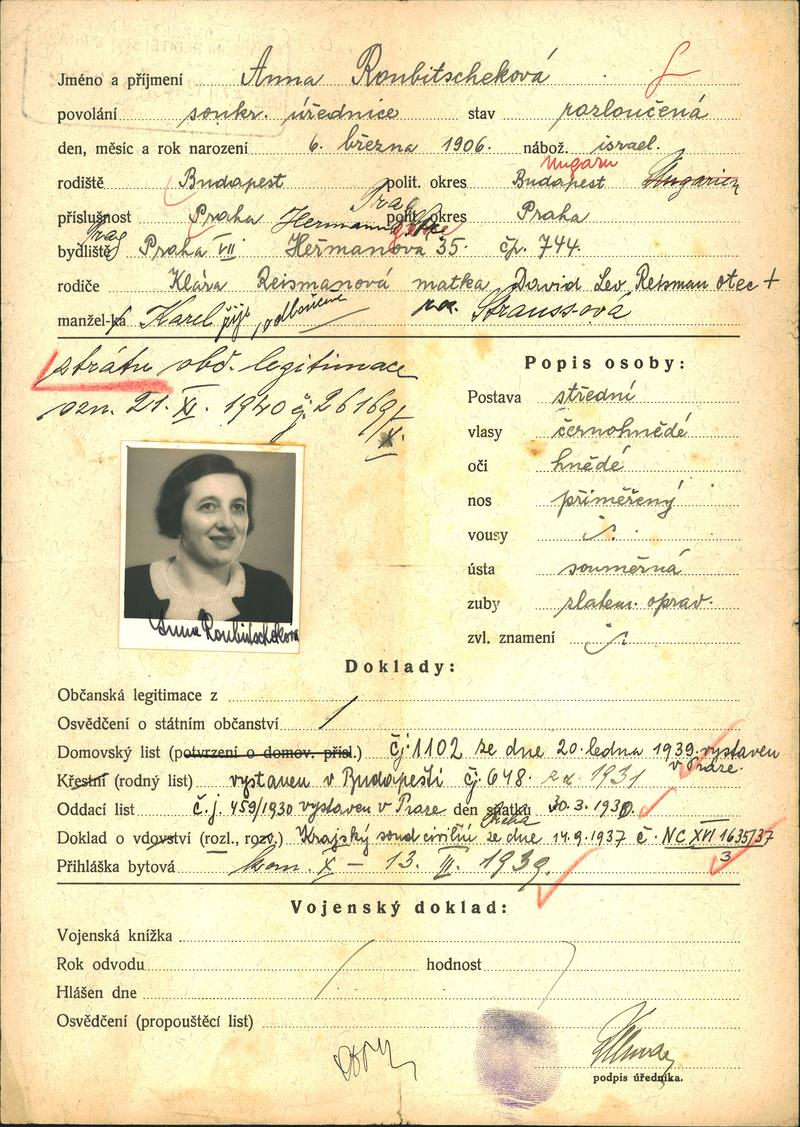 Jméno a příjmení Anna Roubitscheková
povolání soukr. úřednice stav rozloučená
den, měsíc a rok narození 6. března 1906. nábož. israel.
Ungarn
rodiště Budapest polit. okres Budapest Ungarien
Prag
příslušnost Praha Hermann polit. okres Praha
Prag
bydliště Praha VII Heřmanova 35. čp. 744.
rodiče Klára Reismanová matka David Lev Reisman otec +
manžel-ka Karel žije, odloučeně roz. Straussová
ztrátu obč. legitimace
ozn. 21. XI. 1940 č. 26169/
Popis osoby:
Postava střední
vlasy černohnědé
oči hnědé
nos přiměřený
vousy
ústa souměrná
zuby zlatem oprav.
zvl. znamení
Anna Roubitscheková
Doklady:
Občanská legitimace z
Osvědčení o státním občanství
Domovský list (potvrzení o domov. přísl.) čj 1102 ze dne 20. ledna 1939. vystaven
v Praze.
Křestní (rodný list) vystaven v Budapešti čj. 648. 1931
Oddací list č.j. 459/1930 vystaven v Praze den sňatku 30.3.1930.
Praha
Doklad o vdovství (rozl., rozv.) Krajský soud civilní ze dne 14.9.1937 č. NC XVI 1635/37
3
Přihláška bytová kom. X – 13. III. 1939.
Vojenský doklad:
Vojenská knížka
Rok odvodu hodnost
Hlášen dne
Osvědčení (propouštěcí list)
podpis úředníka.